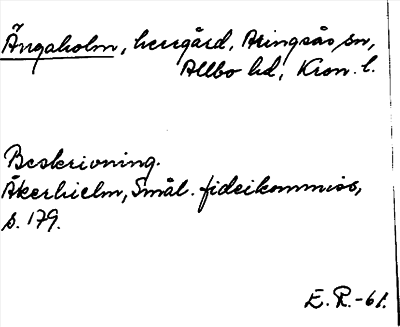 Ängaholm, herrgård, Aringsås sn,
Allbo hd, Kron. l.
Beskrivning.
Åkerhielm, Smål. fideikommiss,
s. 179.
E. R. -61.